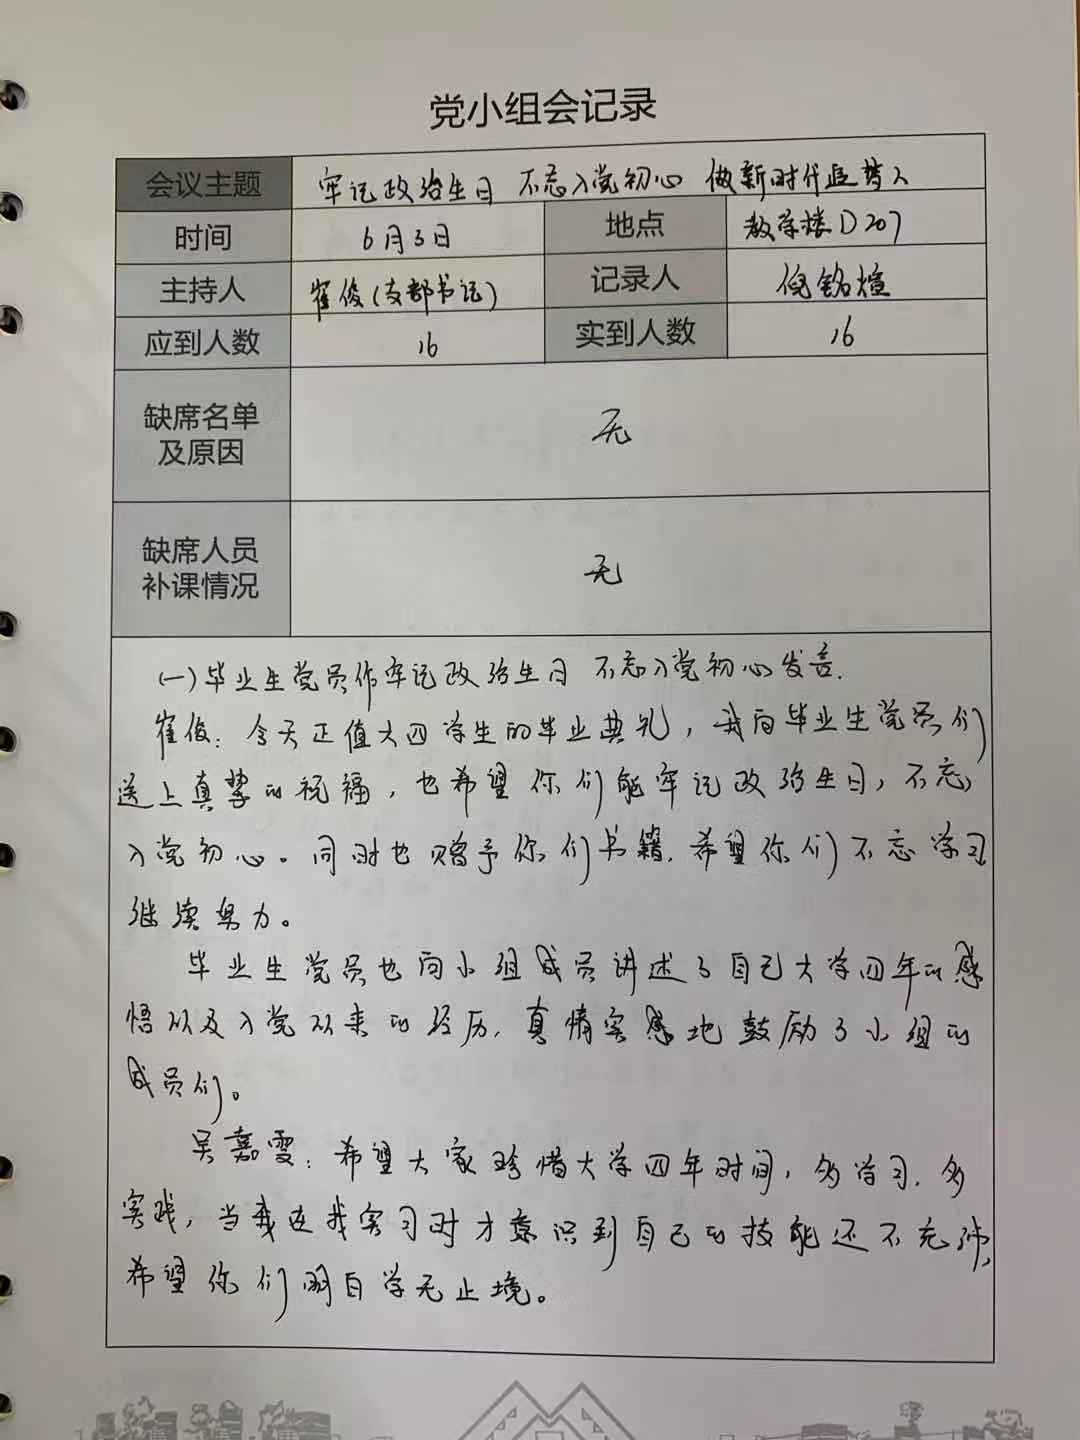 党小组会记录
会议主题 牢记政治生日 不忘入党初心 做新时代追梦人
时间 6月3日 地点 教学楼D207
主持人 崔俊(支部书记) 记录人 倪铭煊
应到人数 16 实到人数 16
缺席名单
及原因 无
缺席人员
补课情况 无
(一)毕业生党员作牢记政治生日 不忘入党初心发言.
崔俊: 今天正值大四学生的毕业典礼, 我向毕业生党员们
送上真挚的祝福, 也希望你们能牢记政治生日, 不忘
入党初心。同时也赠予你们书籍. 希望你们不忘学习
继续努力。
毕业生党员也向小组成员讲述了自己大学四年的感
悟以及入党以来的经历. 真情实感地鼓励了小组的
成员们。
吴嘉雯: 希望大家珍惜大学四年时间, 多学习. 多
实践, 当我在找实习时才意识到自己的技能还不充沛,
希望你们明白学无止境。